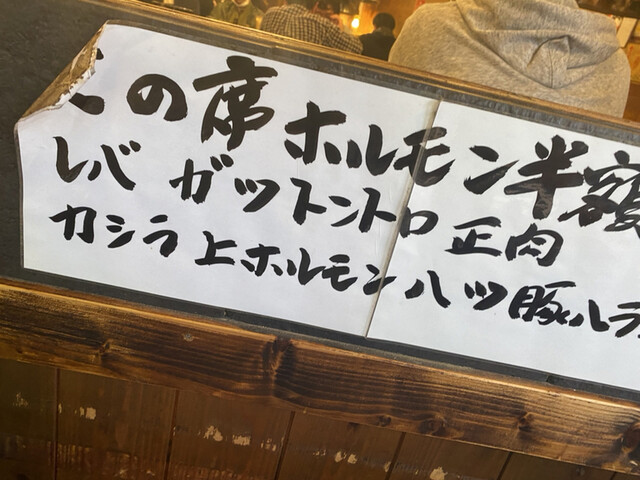 この席ホルモン半額
レバ ガツ トントロ 正肉
カシラ 上ホルモン ハツ 豚ハラ